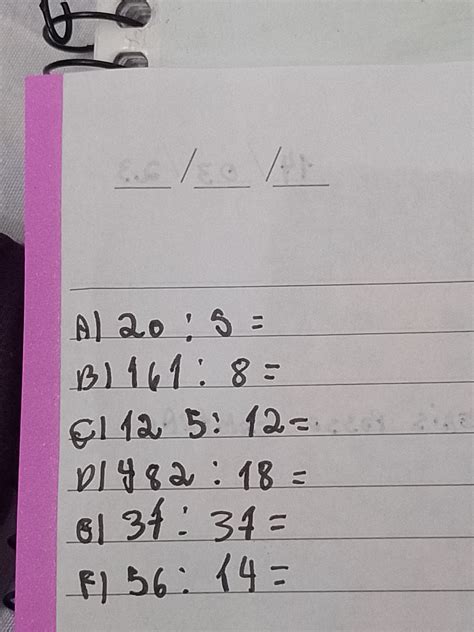 A) 20 : 5 =
B) 161 : 8 =
C) 12 5 : 12 =
D) 482 : 18 =
E) 37 : 37 =
F) 56 : 14 =